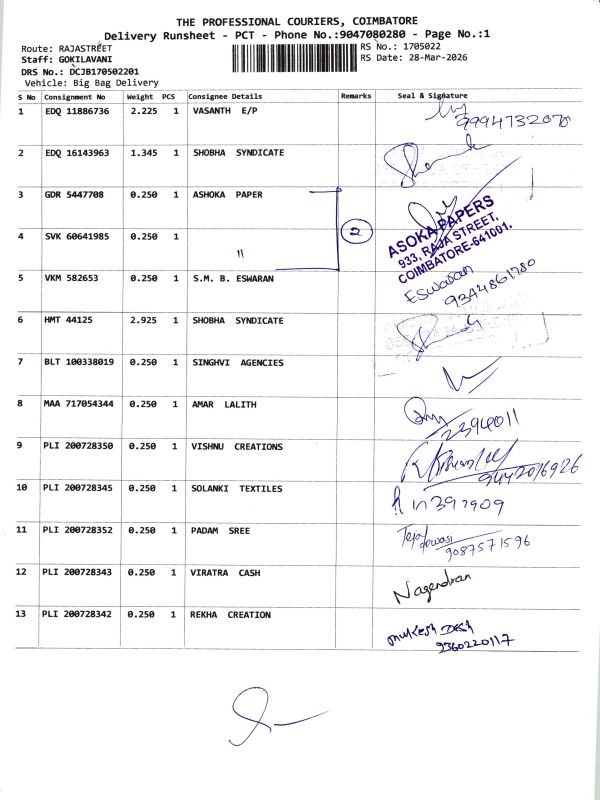 THE PROFESSIONAL COURIERS, COIMBATORE
Delivery Runsheet - PCT - Phone No.:9047080280 - Page No.:1
Route: RAJASTREET
RS No.: 1705022
Staff: GOKILAVANI
RS Date: 28-Mar-2026
DRS No.: DCJB170502201
Vehicle: Big Bag Delivery
S No Consignment No Weight PCS Consignee Details Remarks Seal & Signature
1 EDQ 11886736 2.225 1 VASANTH E/P
9994732070
2 EDQ 16143963 1.345 1 SHOBHA SYNDICATE
3 GDR 5447708 0.250 1 ASHOKA PAPER
2
ASOKA PAPERS
933, RAJA STREET,
COIMBATORE-641001.
4 SVK 60641985 0.250 1 "
5 VKM 582653 0.250 1 S.M. B. ESWARAN
Eswaran
9344861780
6 HMT 44125 2.925 1 SHOBHA SYNDICATE
7 BLT 100338019 0.250 1 SINGHVI AGENCIES
8 MAA 717054344 0.250 1 AMAR LALITH
2394011
9 PLI 200728350 0.250 1 VISHNU CREATIONS
9442016926
10 PLI 200728345 0.250 1 SOLANKI TEXTILES
11 PLI 200728352 0.250 1 PADAM SREE
9087571596
12 PLI 200728343 0.250 1 VIRATRA CASH
Nagendran
13 PLI 200728342 0.250 1 REKHA CREATION
mukesh
9360220117